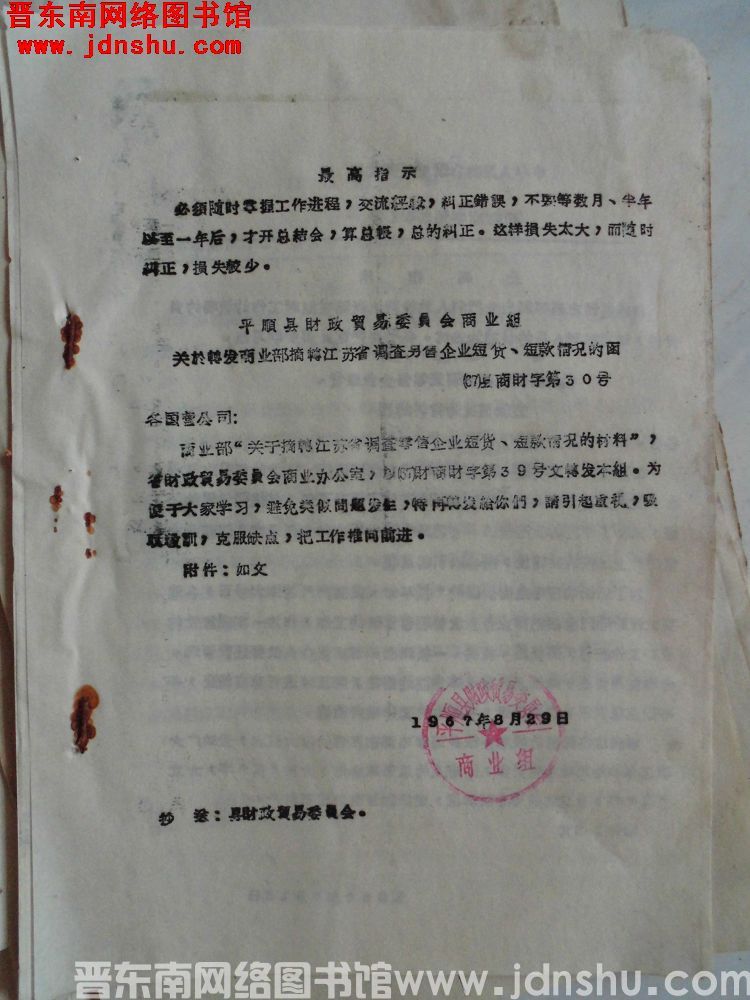 晋东南网络图书馆
www.jdnshu.com
最高指示
必须随时掌握工作进程，交流经验，纠正錯誤，不要等数月、半年
以至一年后，才开总結会，算总賬，总的纠正。这样損失太大，而随时
纠正，損失較少。
平順县財政貿易委員会商业組
关於轉发商业部摘轉江苏省調查另售企业短貨、短款情况的函
(67)屋商財字第30号
各国营公司：
商业部“关于摘轉江苏省調查零售企业短貨、短款情况的材料”，
省財政貿易委員会商业办公室，以(67)財商財字第39号文轉发本組。为
便于大家学习，避免类似問題发生，特再轉发給你們，請引起重視，吸
取教訓，克服缺点，把工作推向前进。
附件：如文
平順县財政貿易委員会
1967年8月29日
商业組
抄送：县財政貿易委員会。
晋东南网络图书馆www.jdnshu.com